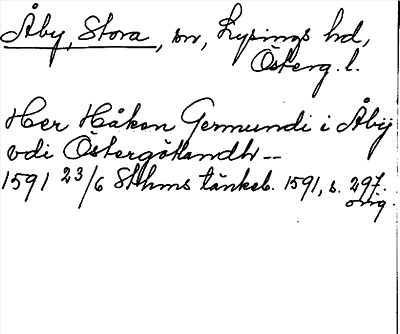 Åby, Stora, sn, Lysings hd,
Österg. l.
Her Håkon Germundi i Åby
vdi Östergötlandh --
1591 23/6 Sthms tänkeb. 1591, s. 297.
orig.